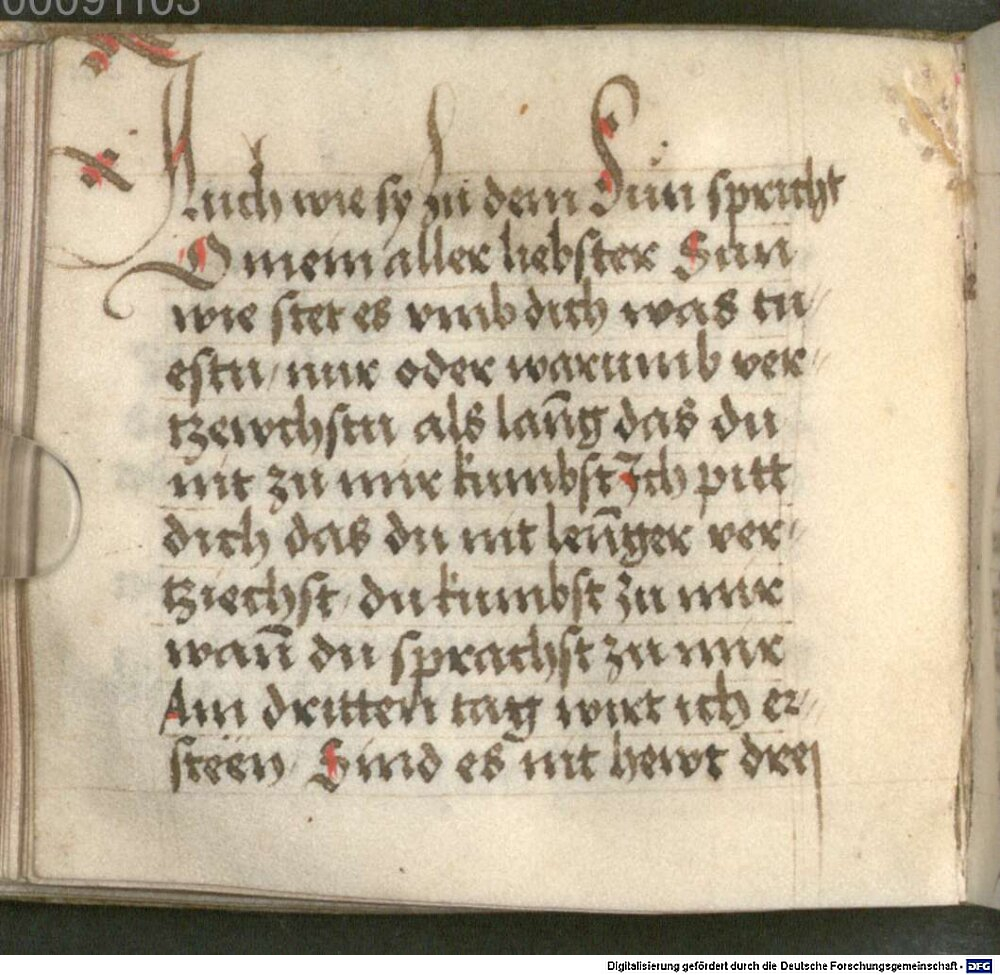 00091103
Auch wie sy zu dem Sun spricht
O mein aller liebster Sun
wie stet es vmb dich was tu⸗
estu nur oder warumb ver⸗
tzewchstu als lanng das du
nit zu mir kumbst Ich pitt
dich das du nit lennger ver⸗
tziechst du kumbst zu mir
wann du sprachst zu mir
Am dritten tag wirt ich er⸗
steen Sind es nit hewt drei
Digitalisierung gefördert durch die Deutsche Forschungsgemeinschaft - DFG